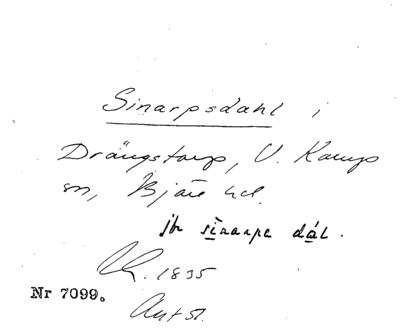 Sinarpsdahl i
Drängstorp, V. Karup
sn, Bjäre hd.
jfr sinarps dal.
1835
Nr 7099.
Ant sv.